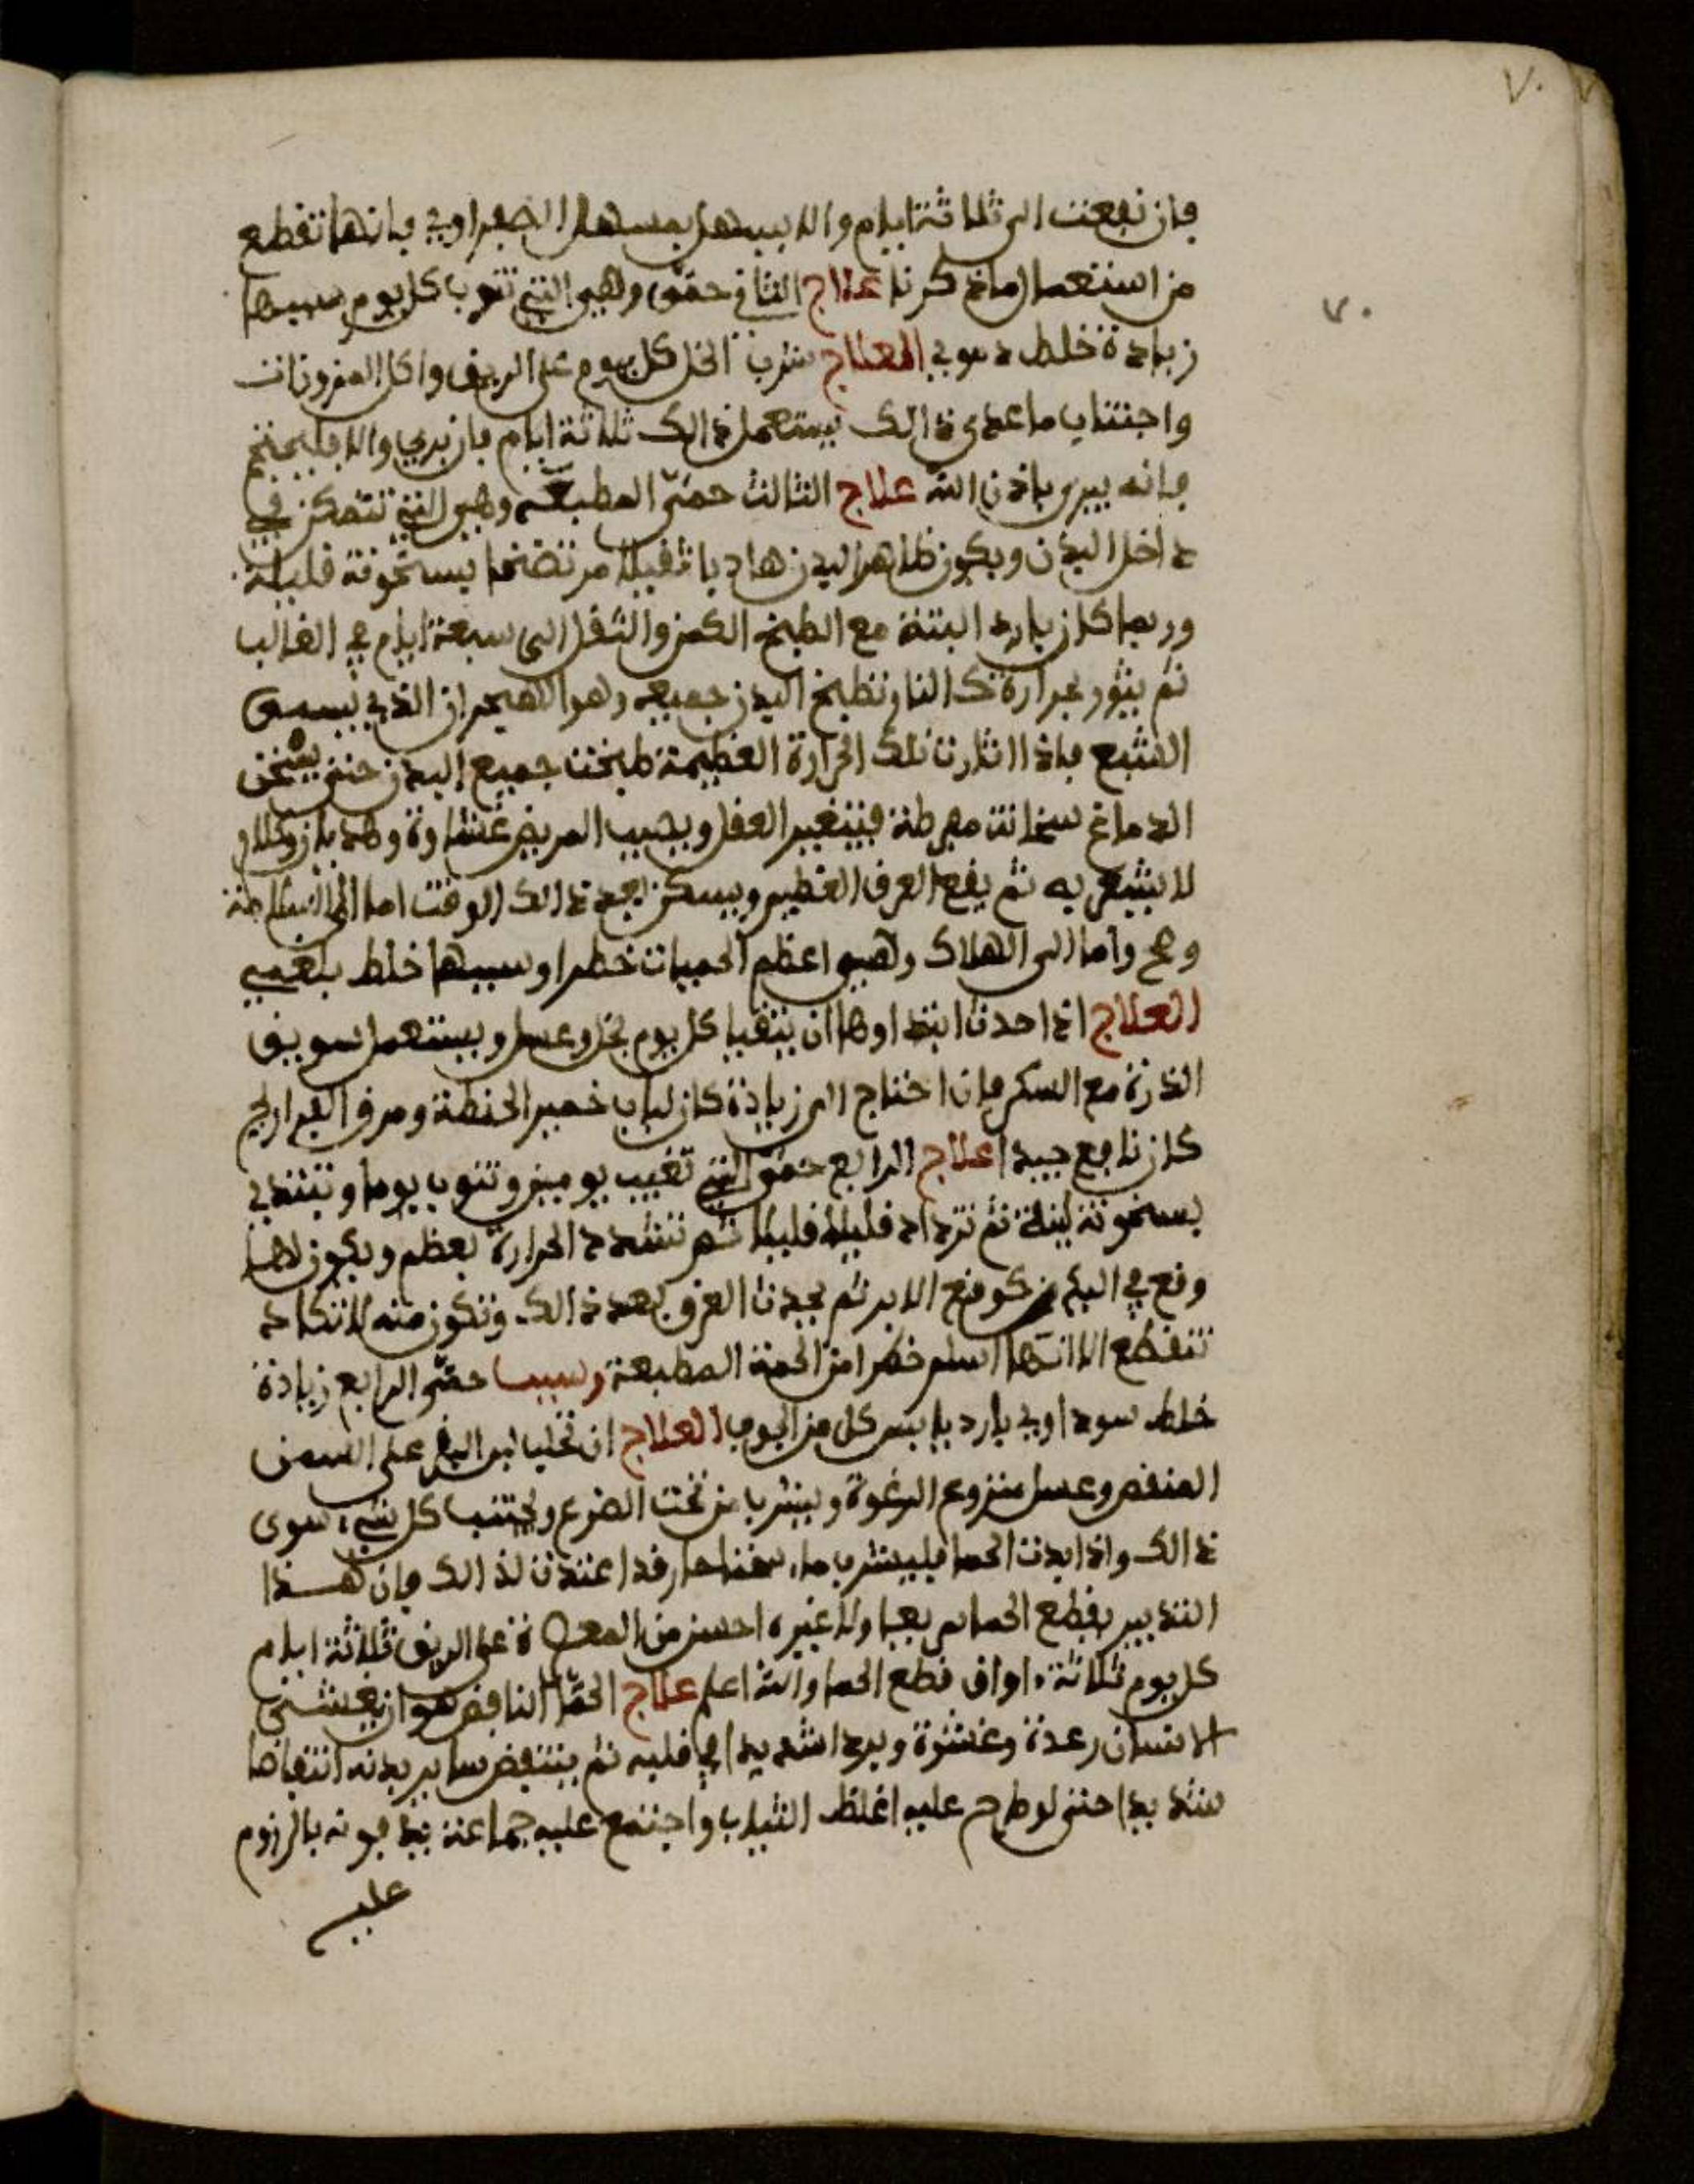 ٧٠
٧٠
فان نفعت الى ثلاثة ايام والا يسهل بمسهل الصفراوي فانها تقطع
من استعمال ماذكرنا علاج الثاني حمى وهي التي تنوب كل يوم سببها
زيادة خلط دموي العلاج شرب الخل كل يوم على الريق واكل المزورات
واجتناب ماعدى ذالك يستعمل ذالك ثلاثة ايام فان بري والا فليحتجم
فانه يبرى باذن الله علاج الثالث حمى المطبعة وهي التي تتمكن في
داخل البدن ويكون ظاهر البدن هاديا ثقيلا مرتضخا بسخونة قليلة
وربما كان بارد البتة مع الطبخ الكمن والثقل الى سبعة ايام في الغالب
ثم يثور بحرارة كالنار تطبخ البدن جميعه وهو الهيجران الذي يسمى
الشبع فاذا اثارت تلك الحرارة العظيمة طبخت جميع البدن حتى يسخن
الدماغ سخانت مفرطة فيتغير العقل ويصيب المريض غشاوة وهذيان وكلام
لا يشعر به ثم يقع العرق العظيم ويسكن بعد ذالك الوقت اما الى السلامة
وصح واما الى الهلاك وهي اعظم الحميات خطرا وسببها خلط بلغمي
العلاج اذا حدث ابتداوها ان يتقيا كل يوم بخل وعسل ويستعمل سويق
الذرة مع السكر فان احتاج الى زيادة كان لباب خمير الحنطة ومرق الفراريج
كان نافع جيدا علاج الرابع حمى التي تغيب يومين وتنوب يوما وتبتدي
بسخونة لينة ثم تزداد قليلا قليلا ثم تشتد الحرارة بعظم ويكون لها
وقع في البدن كوقع الابر ثم يحدث العرق بعد ذالك وتكون منه لا تكاد
تنقطع الا انها اسلم خطرا من الحمة المطبعة وسبب حمى الرابع زيادة
خلط سوداوي بارد يابس كل من الجوف العلاج ان تحليب البقر على السمن
المنقص وعسل منزوع الرغوة ويشرب من تحت الضرع ويجتنب كل شيء سوى
ذالك واذا بدت الحما فليشرب ماء سخنا حار قد اعتدت لذالك فان هذا
التدبير يقطع الحما سريعا ولا غيره احسن من المعدة على الريق ثلاثة ايام
كل يوم ثلاثة اواق قطع الحما والله اعلم علاج الحمّا النافض هو ان يغشى
الانسان رعدة وغشوة وبردا شديدا في قلبه ثم ينتفض ساير بدنه انتفاضا
شديدا حتى لو طرح عليه اغلظ الثياب واجتمع عليه جماعة يدفونه بالزوم
عليه